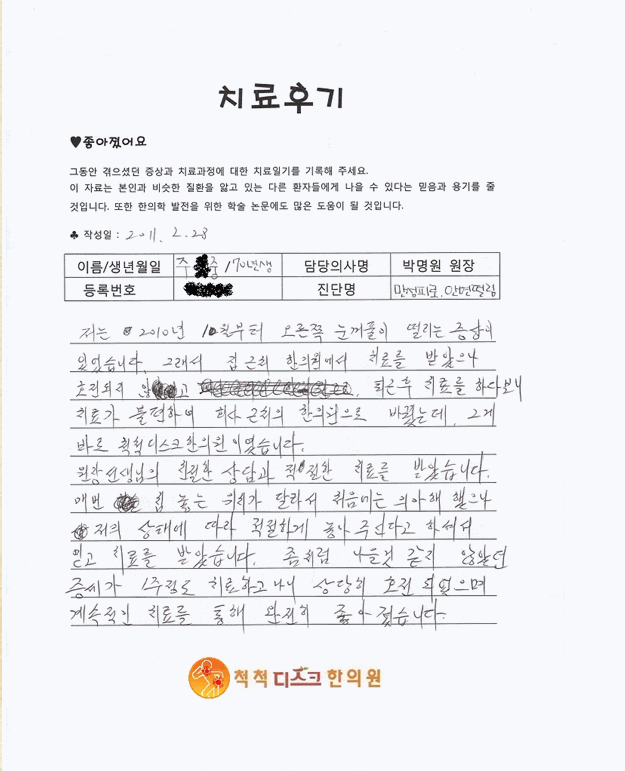 치료후기
♥좋아졌어요
그동안 겪으셨던 증상과 치료과정에 대한 치료일기를 기록해 주세요.
이 자료는 본인과 비슷한 질환을 앓고 있는 다른 환자들에게 나을 수 있다는 믿음과 용기를 줄
것입니다. 또한 한의학 발전을 위한 학술 논문에도 많은 도움이 될 것입니다.
♣ 작성일 : 2011. 2. 28
이름/생년월일 주 중 /70년생 담당의사명 박명원 원장
등록번호 진단명 만성피로, 안면떨림
저는 2010년 10월부터 오른쪽 눈꺼풀이 떨리는 증상이
있었습니다. 그래서 집 근처 한의원에서 치료를 받았으나
호전되지 않고 퇴근후 치료를 하다보니
치료가 불편하여 회사 근처의 한의원으로 바꿨는데, 그게
바로 척척디스크한의원이었습니다.
원장선생님의 친절한 상담과 적절한 치료를 받았습니다.
매번 침 놓는 위치가 달라서 처음에는 의아해 했으나
저의 상태에 따라 적절하게 놓아 주신다고 하셔서
믿고 치료를 받았습니다. 좀처럼 나을것 같지 않았던
증세가 1주정도 치료하고 나니 상당히 호전 되었으며
계속적인 치료를 통해 완전히 좋아졌습니다.
척척디스크한의원